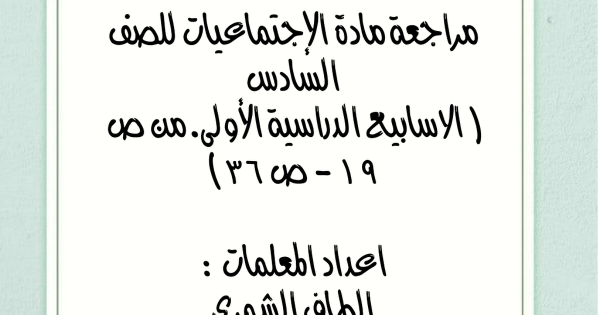 مراجعة مادة الإجتماعيات للصف
السادس
( الاسابيع الدراسية الأولى. من ص
١٩ - ص ٣٦ )
اعداد المعلمات :
الطاف الشمري